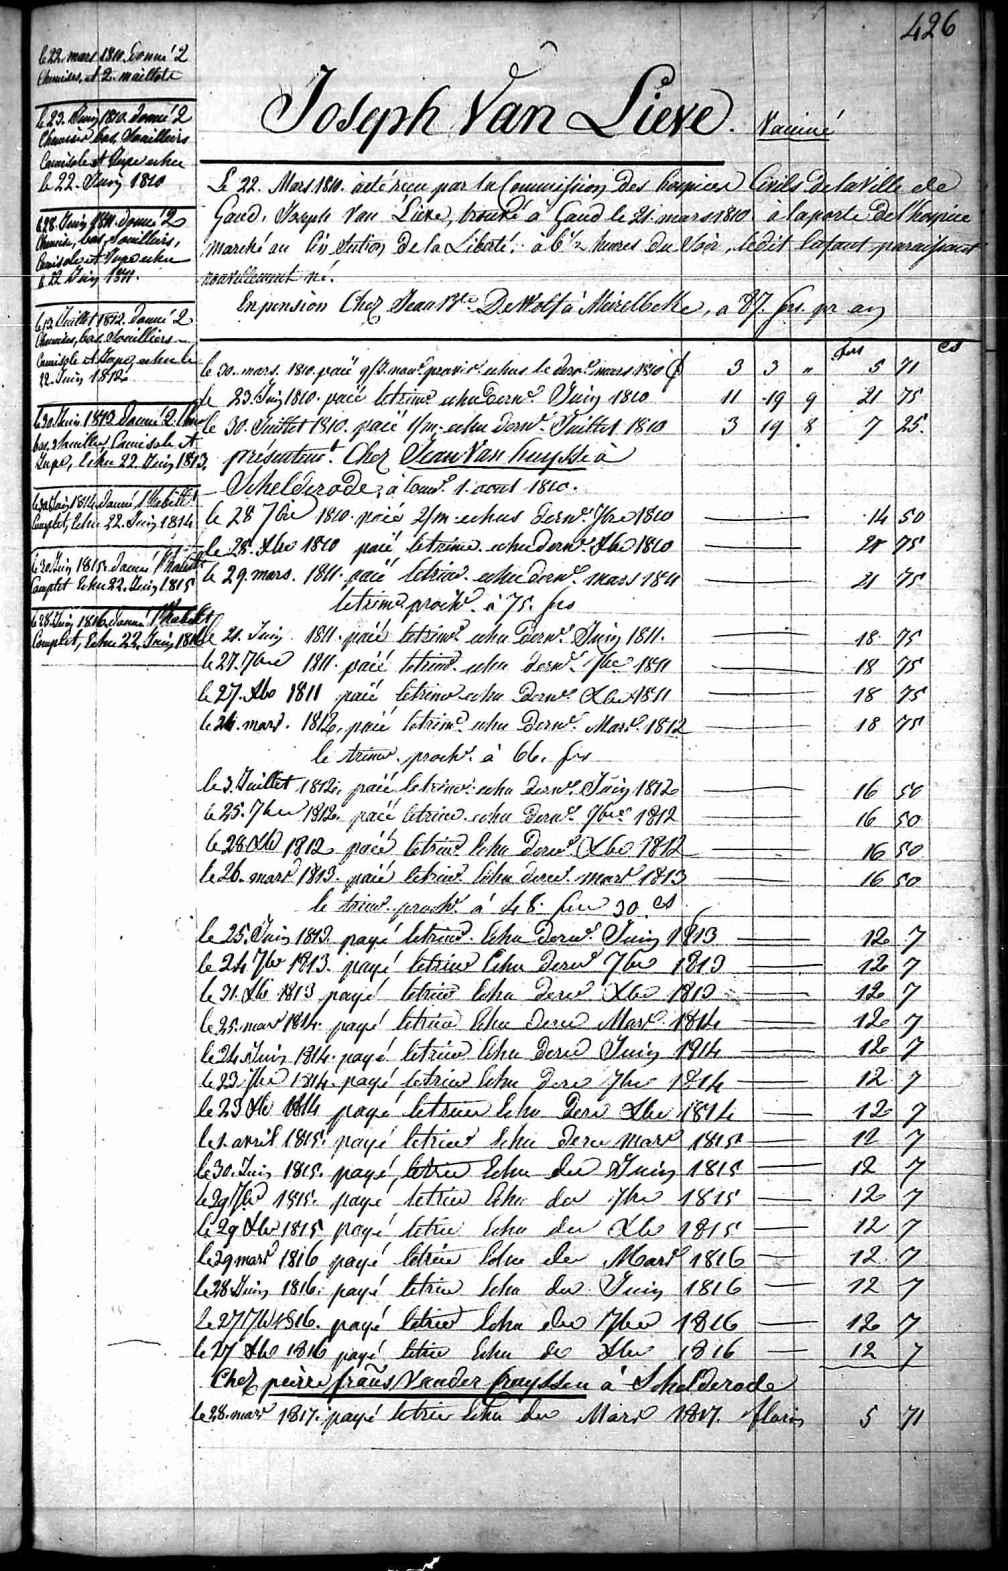 426
le 22. mars 1810. donné 2
Chemises, et 2. maillots
le 23. Juin 1810. donné 2
Chemises bas, Souilliers
Camisole et Jupe echu
le 22. Juin 1810
le 28. Juin 1811. donné 2
Chemises, bas, Souilliers,
Camisole et Jupe echu
le 22 Juin 1811.
le 13. Juillet 1812. donné 2
Chemises, bas, Souilliers
Camisole et Jupe, echu le
22. Juin 1812
le 30 Juin 1813. donné 2
bas, Camisole et
Jupe, Echu 22. Juin 1813
le 30 Juin 1814 donné 1 habill.t
Complet, Echu 22. Juin 1814
le 30 Juin 1815. donné 1 habill.t
Complet Echu 22. Juin 1815
le 28. Juin 1816. donné 1 habill.t
Complet, Echu 22. Juin 1816
Joseph Van Lieve. Vaciné
Le 22. Mars 1810. a été reçu par la Commission des hospices Civils de la Ville de
Gand, Joseph Van Lieve, trouvé à Gand le 21. mars 1810 à la porte de l'hospice
marché au Section de la Liberté, à 6 1/2 heures du Soir, ledit Enfant paraissant
nouvellement né.
En pension Chez Jean Bte De Wolf à Meirelbeke, a 87. frs. pr an
frs cs
le 30. mars. 1810. paié echus le dern.r mars 1810 3 3 " 5 71
le 23. Juin 1810. paié le trim.e echu dern.r Juin 1810 11 19 9 21 75
le 30. Juillet 1810. paié 1/m. echu dern.r Juillet 1810 3 19 8 7 25.
présentem.t Chez Jean Van huysse à
Schelderode, à com.r 1. aout 1810.
le 28 7bre 1810. paié 2/m. echus dern.r 7bre 1810 14 50
le 28. Xbre 1810 paié le trim.e echu dern.r Xbre 1810 21 75
le 29. mars. 1811. paié le trim.e echu dern.r mars 1811 21 75
le trim.e proch.n à 75. frs
le 21. Juin 1811. paié le trim.e echu dern.r Juin 1811. 18 75
le 27. 7bre 1811. paié le trim.e echu dern.r 7bre 1811 18 75
le 27. Xbre 1811 paié le trim.e echu dern.r Xbre 1811 18 75
le 26. mars. 1812, paié le trim.e echu dern.r Mars. 1812 18 75
le trim.e proch.n à 66. frs
le 3. Juillet 1812. paié le trim.e echu dern.r Juin 1812 16 50
le 25. 7bre 1812. paié le trim.e echu dern.r 7bre 1812 16 50
le 28 Xbre 1812 paié le trim.e Echu dern.r Xbre 1812 16 50
le 26. mars 1813. paié le trim.e Echu dern.r mars 1813 16 50
le trim.e proch.n à 48. frs 30. cs
le 25. Juin 1813. payé le trim.e Echu dern.r Juin 1813 12 7
le 24 7bre 1813. payé le trim.e Echu dern.r 7bre 1813 12 7
le 31. Xbre 1813 payé le trim.e Echu dern.r Xbre 1813 12 7
le 25. mars 1814. payé le trim.e Echu dern.r Mars 1814 12 7
le 24 Juin 1814. payé le trim.e Echu dern.r Juin 1814 12 7
le 23. 7bre 1814. payé le trim.e Echu dern.r 7bre 1814 12 7
le 23 Xbre 1814 payé le trim.e Echu dern.r Xbre 1814 12 7
le 1. avril 1815. payé le trim.e Echu dern.r mars 1815 12 7
le 30. Juin 1815. payé, le trim.e Echu der Juin 1815 12 7
le 29 7bre 1815. payé le trim.e Echu der 7bre 1815 12 7
le 29 Xbre 1815 payé le trim.e Echu der Xbre 1815 12 7
le 29 mars 1816 payé le trim.e Echu der Mars 1816 12 7
le 28 Juin 1816. payé le trim.e Echu der Juin 1816 12 7
le 27 7bre 1816. payé le trim.e Echu der 7bre 1816 12 7
le 27 Xbre 1816 payé le trim.e Echu de Xbre 1816 12 7
Chez pierre frans Vander Cruyssen à Schelderode
le 28. mars 1817. payé le trim.e Echu der Mars 1817. florin 5 71